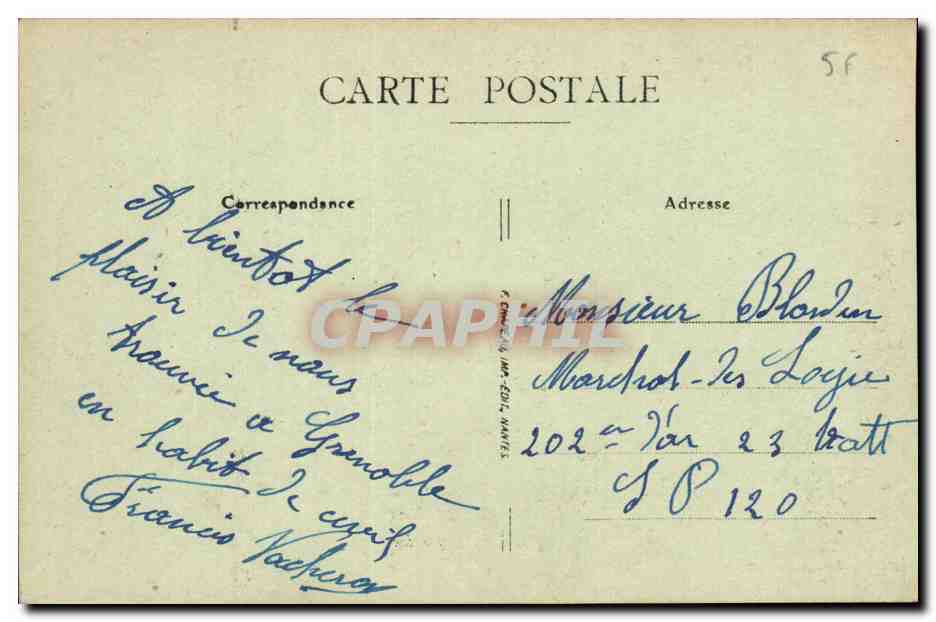 5F
CARTE POSTALE
Correspondance
Adresse
A bientôt le
plaisir de nous
trouvée a Grenoble
en habit de civil
Francis Vacheron
CPAPHIL
IMP.-EDIT. NANTES
Monsieur Blondin
Marchal-des Logie
202 23
S P 120